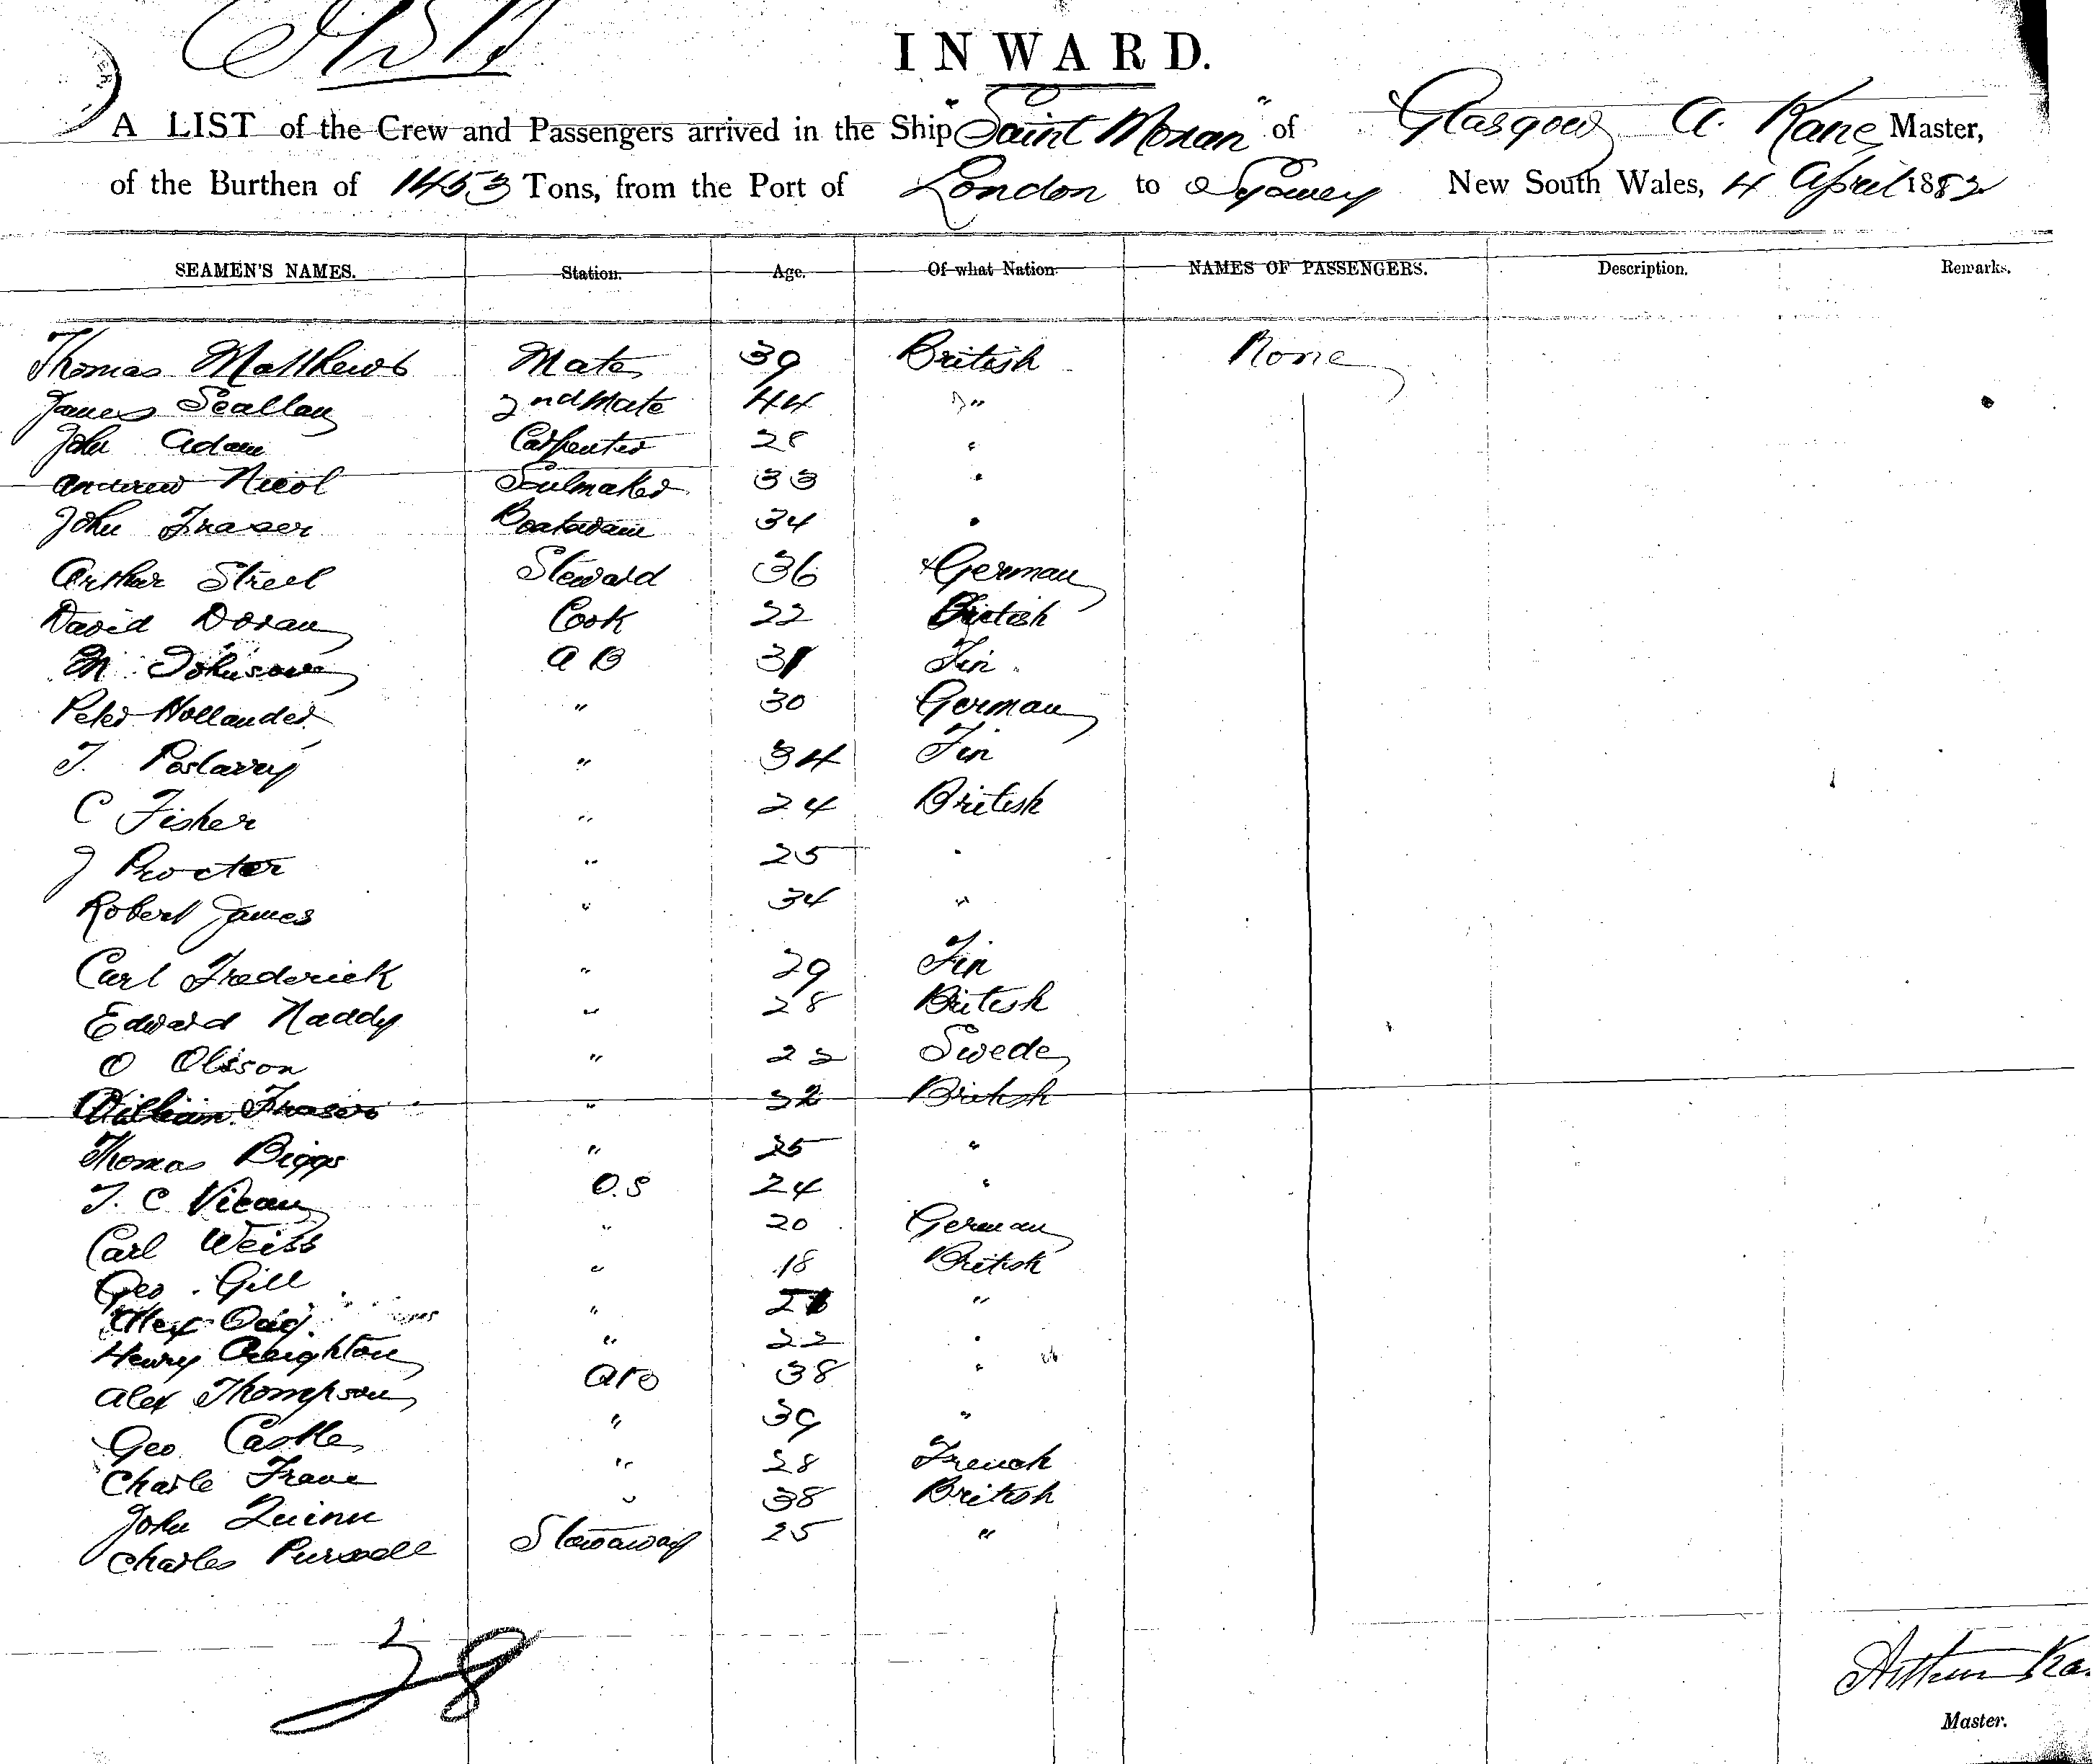 INWARD.
A LIST of the Crew and Passengers arrived in the Ship "Saint Moran" of Glasgow A. Kane Master,
of the Burthen of 1453 Tons, from the Port of London to Sydney New South Wales, 4 April 1882
SEAMEN'S NAMES. Station. Age. Of what Nation. NAMES OF PASSENGERS. Description. Remarks.
Thomas Matthews Mate 39 British None
James Scallan 2nd Mate 44 "
John Adam Carpenter 28 "
Andrew Nicol Sailmaker 33 "
John Fraser Boatswain 34 "
Arthur Streel Steward 36 German
David Doran Cook 22 British
M. Johnson A B 31 Fin
Peter Hollander " 30 German
" 34 Fin
C Fisher " 24 British
J Procter " 25 "
Robert James " 34 "
Carl Frederick " 29 Fin
Edward Naddy " 28 British
O Olsson " 22 Swede
William Fraser " 32 British
Thomas Biggs " 25 "
J. C O.S 24 "
Carl Weiss " 20 German
Geo. Gill " 18 British
Alex Oag. " "
Henry Creighton " 22 "
Alex Thompson 38 "
Geo Castle " 39 "
Charle " 28 French
John Quinn " 38 British
Charles Pursell Stowaway 25 "
28
Arthur Ka
Master.